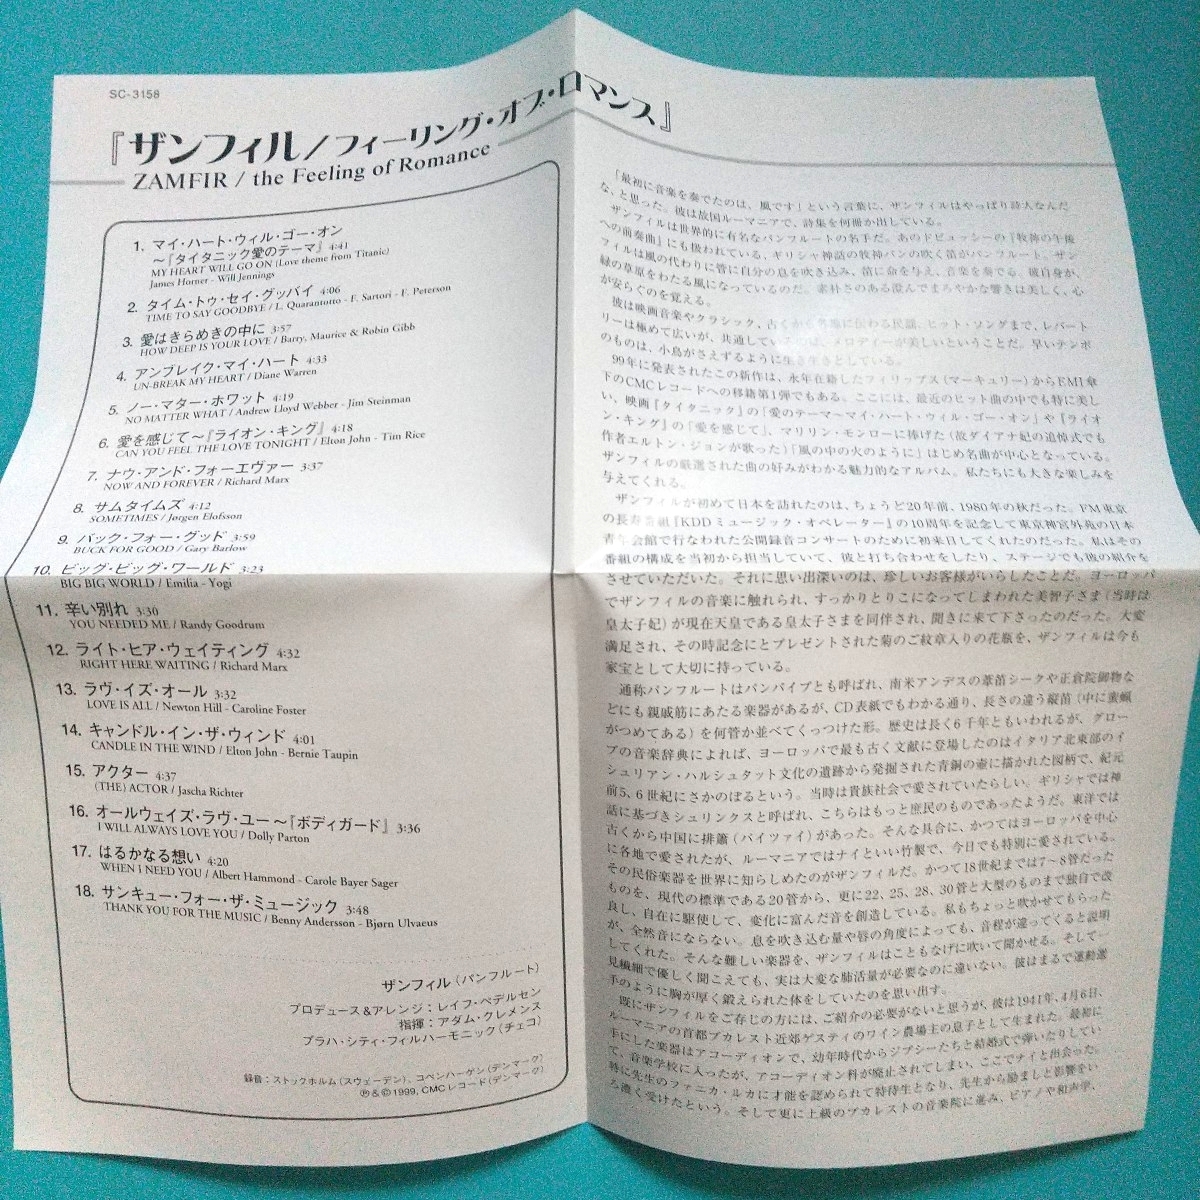 SC-3158
『ザンフィル/フィーリング・オブ・ロマンス』
ZAMFIR / the Feeling of Romance
1. マイ・ハート・ウィル・ゴー・オン
〜『タイタニック愛のテーマ』 4:41
MY HEART WILL GO ON (Love theme from Titanic)
James Horner - Will Jennings
2. タイム・トゥ・セイ・グッバイ 4:06
TIME TO SAY GOODBYE / L. Quarantotto - F. Sartori - F. Peterson
3. 愛はきらめきの中に 3:57
HOW DEEP IS YOUR LOVE / Barry, Maurice & Robin Gibb
4. アンブレイク・マイ・ハート 4:33
UN-BREAK MY HEART / Diane Warren
5. ノー・マター・ホワット 4:19
NO MATTER WHAT / Andrew Lloyd Webber - Jim Steinman
6. 愛を感じて〜『ライオン・キング』 4:18
CAN YOU FEEL THE LOVE TONIGHT / Elton John - Tim Rice
7. ナウ・アンド・フォーエヴァー 3:37
NOW AND FOREVER / Richard Marx
8. サムタイムズ 4:12
SOMETIMES / Jørgen Elofsson
9. バック・フォー・グッド 3:59
BUCK FOR GOOD / Gary Barlow
10. ビッグ・ビッグ・ワールド 3:23
BIG BIG WORLD / Emilia - Yogi
11. 辛い別れ 3:30
YOU NEEDED ME / Randy Goodrum
12. ライト・ヒア・ウェイティング 4:32
RIGHT HERE WAITING / Richard Marx
13. ラヴ・イズ・オール 3:32
LOVE IS ALL / Newton Hill - Caroline Foster
14. キャンドル・イン・ザ・ウィンド 4:01
CANDLE IN THE WIND / Elton John - Bernie Taupin
15. アクター 4:37
(THE) ACTOR / Jascha Richter
16. オールウェイズ・ラヴ・ユー〜『ボディガード』 3:36
I WILL ALWAYS LOVE YOU / Dolly Parton
17. はるかなる想い 4:20
WHEN I NEED YOU / Albert Hammond - Carole Bayer Sager
18. サンキュー・フォー・ザ・ミュージック 3:48
THANK YOU FOR THE MUSIC / Benny Andersson - Bjørn Ulvaeus
ザンフィル (パンフルート)
プロデュース&アレンジ:レイフ・ペデルセン
指揮:アダム・クレメンス
プラハ・シティ・フィルハーモニック (チェコ)
録音:ストックホルム (スウェーデン)、コペンハーゲン (デンマーク)
Ⓟ&©1999, CMCレコード (デンマーク)
「最初に音楽を奏でたのは、風です」という言葉に、ザンフィルはやっぱり詩人なんだ
な、と思った。彼は故国ルーマニアで、詩集を何冊か出している。
ザンフィルは世界的に有名なパンフルートの名手だ。あのドビュッシーの『牧神の午後
への前奏曲』にも扱われている、ギリシャ神話の牧神パンの吹く笛がパンフルート。ザン
フィルは風の代わりに管に自分の息を吹き込み、笛に命を与え、音楽を奏でる。彼自身が、
緑の草原をわたる風になっているのだ。素朴さのある澄んでまろやかな響きは美しく、心
が安らぐのを覚える。
彼は映画音楽やクラシック、古くから各地に伝わる民謡、ヒット・ソングまで、レパート
リーは極めて広いが、共通しているのは、メロディーが美しいということだ。早いテンポ
のものは、小鳥がさえずるように生き生きとしている。
99年に発表されたこの新作は、永年在籍したフィリップス (マーキュリー) からEMI傘
下のCMCレコードへの移籍第1弾でもある。ここには、最近のヒット曲の中でも特に美し
い、映画『タイタニック』の「愛のテーマ〜マイ・ハート・ウィル・ゴー・オン」や『ライオ
ン・キング』の「愛を感じて」、マリリン・モンローに捧げた (故ダイアナ妃の追悼式でも
作者エルトン・ジョンが歌った)「風の中の火のように」はじめ名曲が中心となっている。
ザンフィルの厳選された曲の好みがわかる魅力的なアルバム。私たちにも大きな楽しみを
与えてくれる。
ザンフィルが初めて日本を訪れたのは、ちょうど20年前、1980年の秋だった。FM東京
の長寿番組『KDDミュージック・オペレーター』の10周年を記念して東京神宮外苑の日本
青年会館で行なわれた公開録音コンサートのために初来日してくれたのだった。私はその
番組の構成を当初から担当していて、彼と打ち合わせをしたり、ステージでも彼の紹介を
させていただいた。それに思い出深いのは、珍しいお客様がいらしたことだ。ヨーロッパ
でザンフィルの音楽に触れられ、すっかりとりこになってしまわれた美智子さま (当時は
皇太子妃) が現在天皇である皇太子さまを同伴され、聞きに来て下さったのだった。大変
満足され、その時記念にとプレゼントされた菊のご紋章入りの花瓶を、ザンフィルは今も
家宝として大切に持っている。
通称パンフルートはパンパイプとも呼ばれ、南米アンデスの葦笛シークや正倉院御物な
どにも親戚筋にあたる楽器があるが、CD表紙でもわかる通り、長さの違う縦笛 (中に蜜蝋
がつめてある) を何管か並べてくっつけた形。歴史は長く6千年ともいわれるが、グロー
ブの音楽辞典によれば、ヨーロッパで最も古く文献に登場したのはイタリア北東部のイ
シュリアン・ハルシュタット文化の遺跡から発掘された青銅の壷に描かれた図柄で、紀元
前5、6世紀にさかのぼるという。当時は貴族社会で愛されていたらしい。ギリシャでは神
話に基づきシュリンクスと呼ばれ、こちらはもっと庶民のものであったようだ。東洋では
古くから中国に排簫 (パイツァイ) があった。そんな具合に、かつてはヨーロッパを中心
に各地で愛されたが、ルーマニアではナイといい竹製で、今日でも特別に愛されている。
その民俗楽器を世界に知らしめたのがザンフィルだ。かつて18世紀までは7〜8管だった
ものを、現代の標準である20管から、更に22、25、28、30管と大型のものまで独自で改
良し、自在に駆使して、変化に富んだ音を創造している。私もちょっと吹かせてもらった
が、全然音にならない。息を吹き込む量や唇の角度によっても、音程が違ってくると説明
してくれた。そんな難しい楽器を、ザンフィルはこともなげに吹いて聞かせる。そして一
見繊細で優しく聞こえても、実は大変な肺活量が必要なのに違いない。彼はまるで運動選
手のように胸が厚く鍛えられた体をしていたのを思い出す。
既にザンフィルをご存じの方には、ご紹介の必要がないと思うが、彼は1941年、4月6日、
ルーマニアの首都ブカレスト近郊ゲスティのワイン農場主の息子として生まれた。最初に
手にした楽器はアコーディオンで、幼年時代からジプシーたちと結婚式で弾いたりしてい
て、音楽学校に入ったが、アコーディオン科が廃止されてしまい、ここでナイと出会った。
特に先生のファニカ・ルカに才能を認められて特待生となり、先生から励ましと影響をい
ろ濃く受けたという。そして更に上級のブカレストの音楽院に進み、ピアノや和声学、